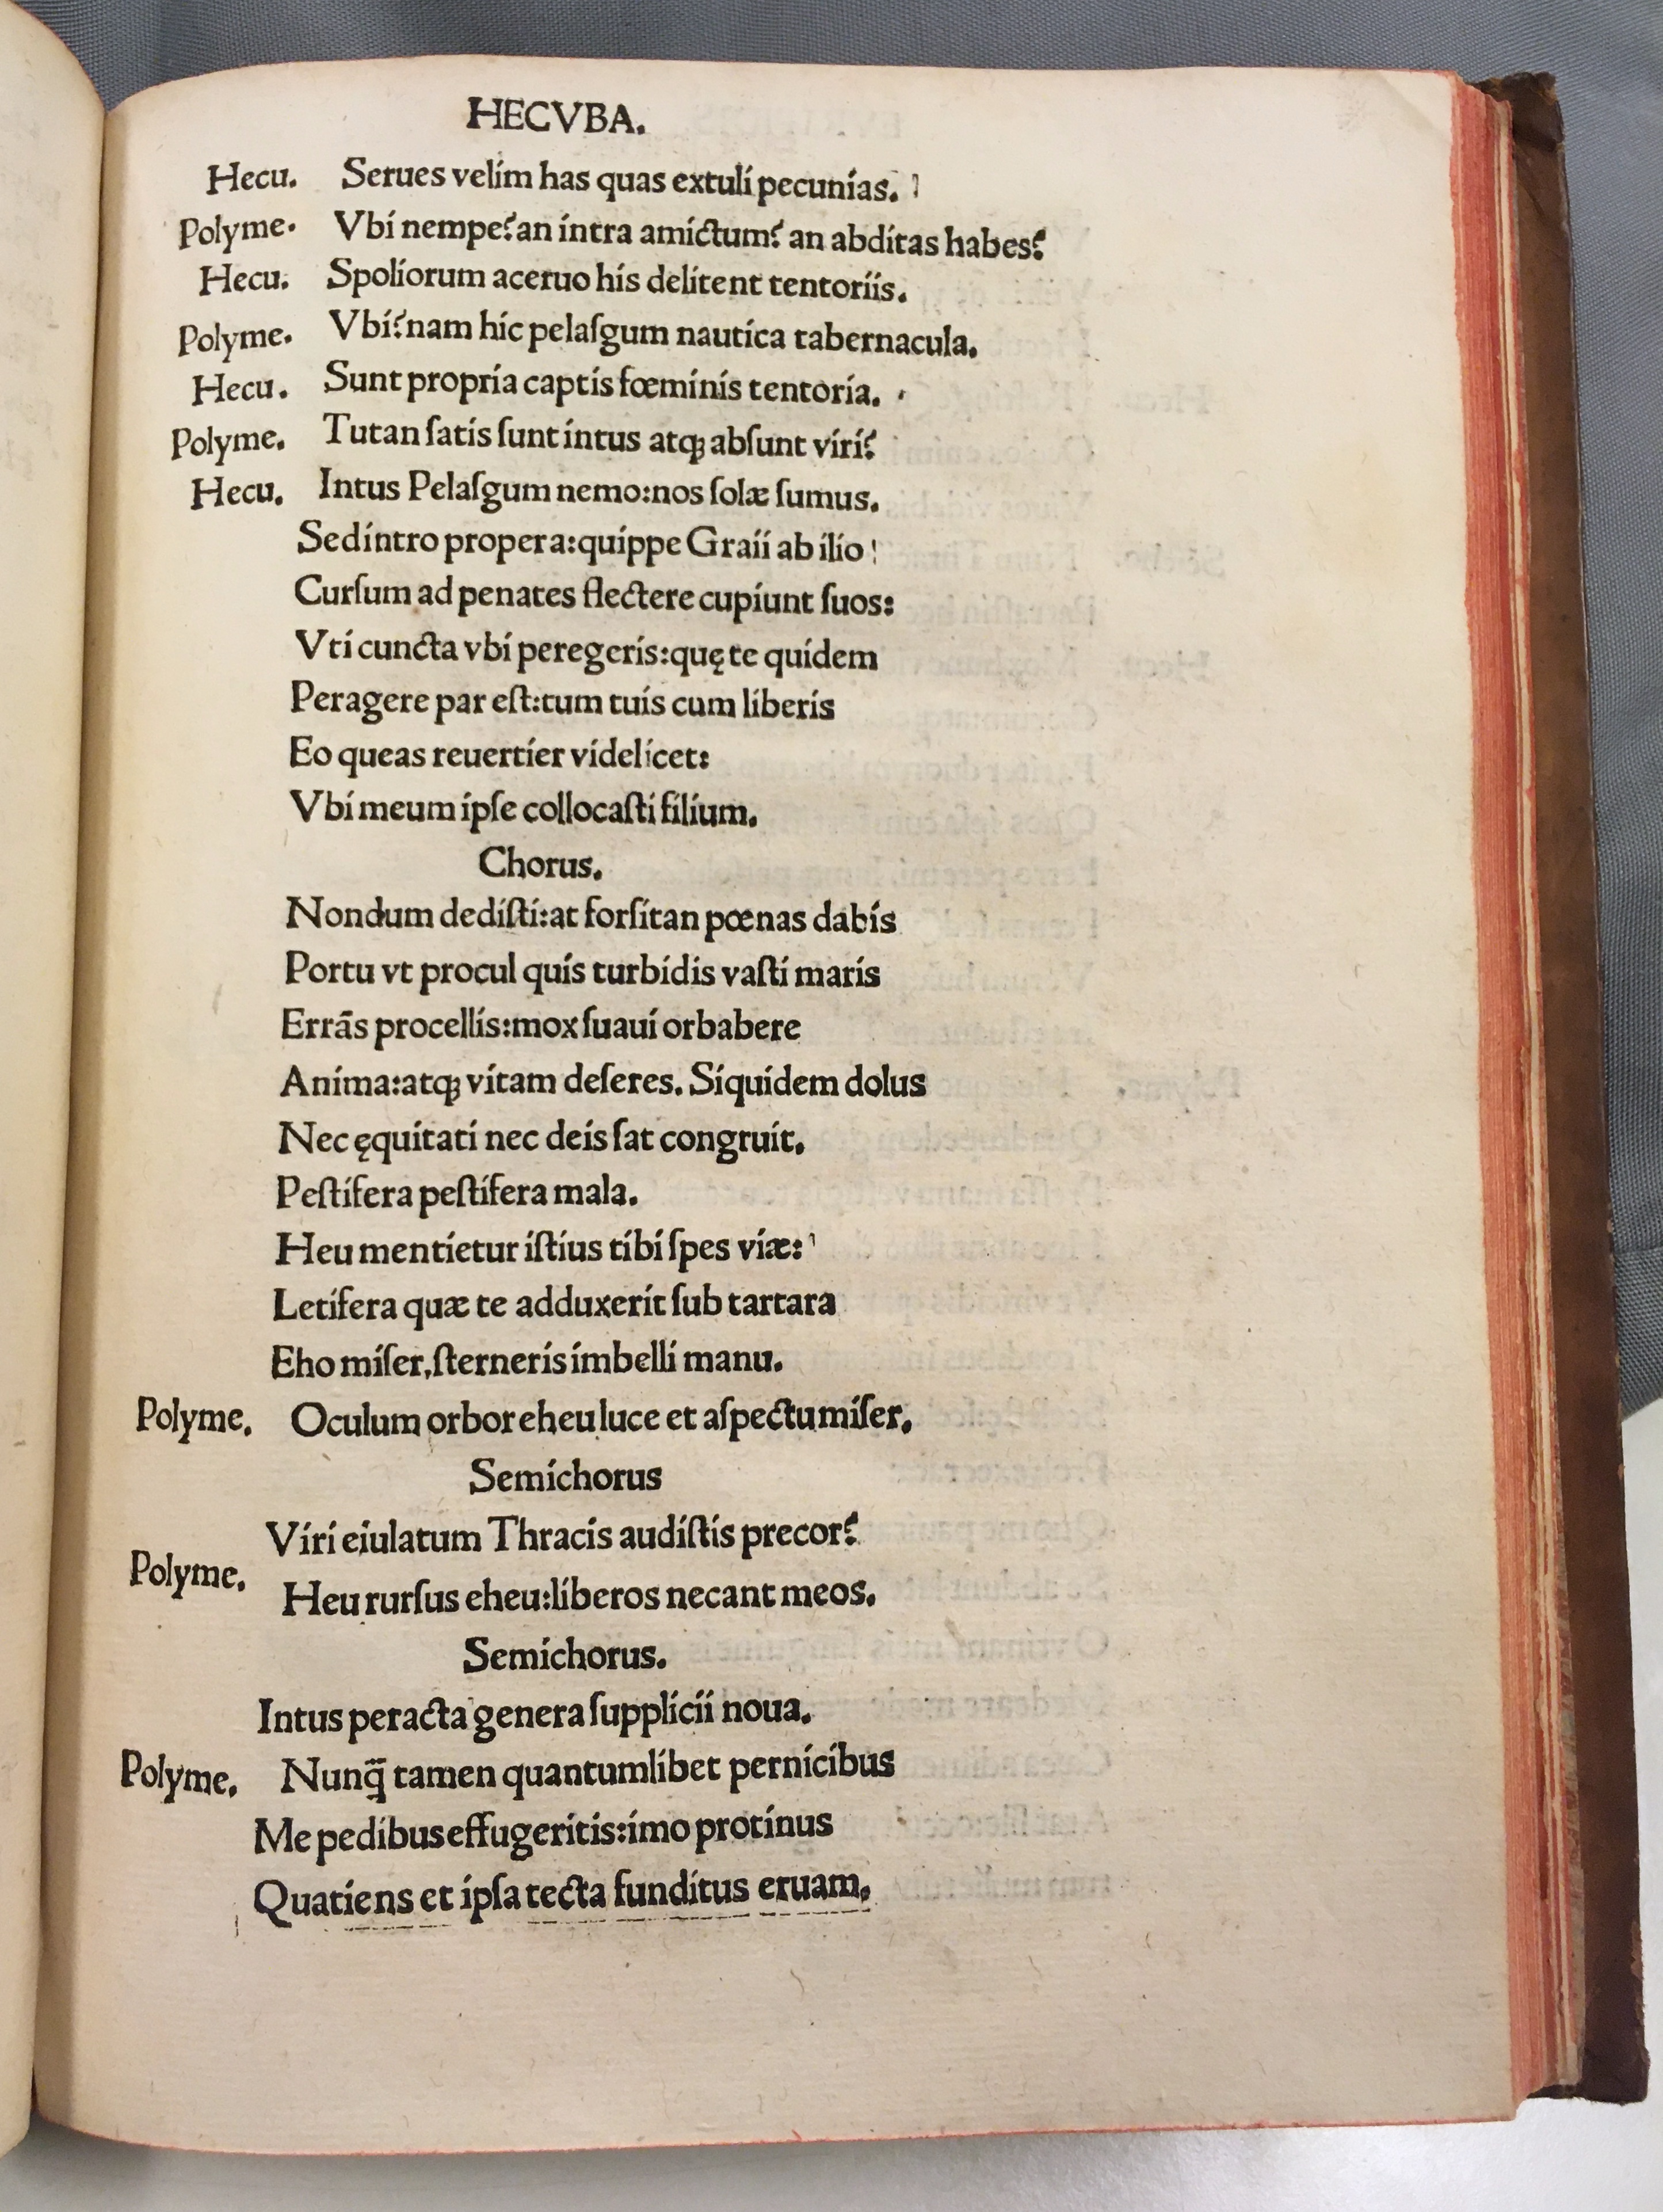 HECVBA.
Hecu. Serues velim has quas extuli pecunias.
Polyme. Vbi nempe? an intra amictum? an abditas habes?
Hecu. Spoliorum aceruo his delitent tentoriis.
Polyme. Vbi? nam hic pelaſgum nautica tabernacula.
Hecu. Sunt propria captis fœminis tentoria.
Polyme. Tutan ſatis ſunt intus atqꝫ abſunt viri?
Hecu. Intus Pelaſgum nemo: nos ſolæ ſumus.
Sed intro propera: quippe Graii ab ilio
Curſum ad penates flectere cupiunt ſuos:
Vti cuncta vbi peregeris: quę te quidem
Peragere par eſt: tum tuis cum liberis
Eo queas reuertier videlicet:
Vbi meum ipſe collocaſti filium.
Chorus.
Nondum dediſti: at forſitan pœnas dabis
Portu vt procul quis turbidis vaſti maris
Errãs procellis: mox ſuaui orbabere
Anima: atqꝫ vitam deſeres. Siquidem dolus
Nec ęquitati nec deis ſat congruit.
Peſtifera peſtifera mala.
Heu mentietur iſtius tibi ſpes viæ:
Letifera quæ te adduxerit ſub tartara
Eho miſer, ſterneris imbelli manu.
Polyme. Oculum orbor eheu luce et aſpectu miſer.
Semichorus
Viri eiulatum Thracis audiſtis precor?
Polyme. Heu rurſus eheu: liberos necant meos.
Semichorus.
Intus peracta genera ſupplicii noua.
Polyme. Nunq̃ tamen quantumlibet pernicibus
Me pedibus effugeritis: imo protinus
Quatiens et ipſa tecta funditus eruam.